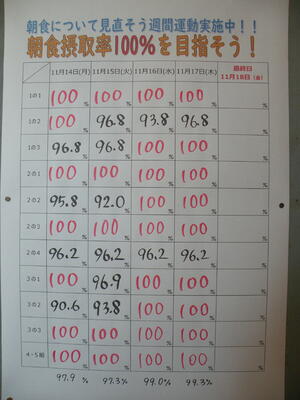 朝食について見直そう週間運動実施中！！
朝食摂取率100%を目指そう！
11月14日(月) 11月15日(火) 11月16日(水) 11月17日(木) 最終日 11月18日(金)
1の1 100% 100% 100% 100% %
1の2 100% 96.8% 93.8% 96.8% %
1の3 96.8% 96.8% 100% 100% %
2の1 100% 100% 100% 100% %
2の2 95.8% 92.0% 100% 100% %
2の3 100% 100% 100% 100% %
2の4 96.2% 96.2% 96.2% 96.2% %
3の1 100% 96.9% 100% 100% %
3の2 90.6% 93.8% 100% 100% %
3の3 100% 100% 100% 100% %
4・5組 100% 100% 100% 100% %
97.9% 97.3% 99.0% 99.3%